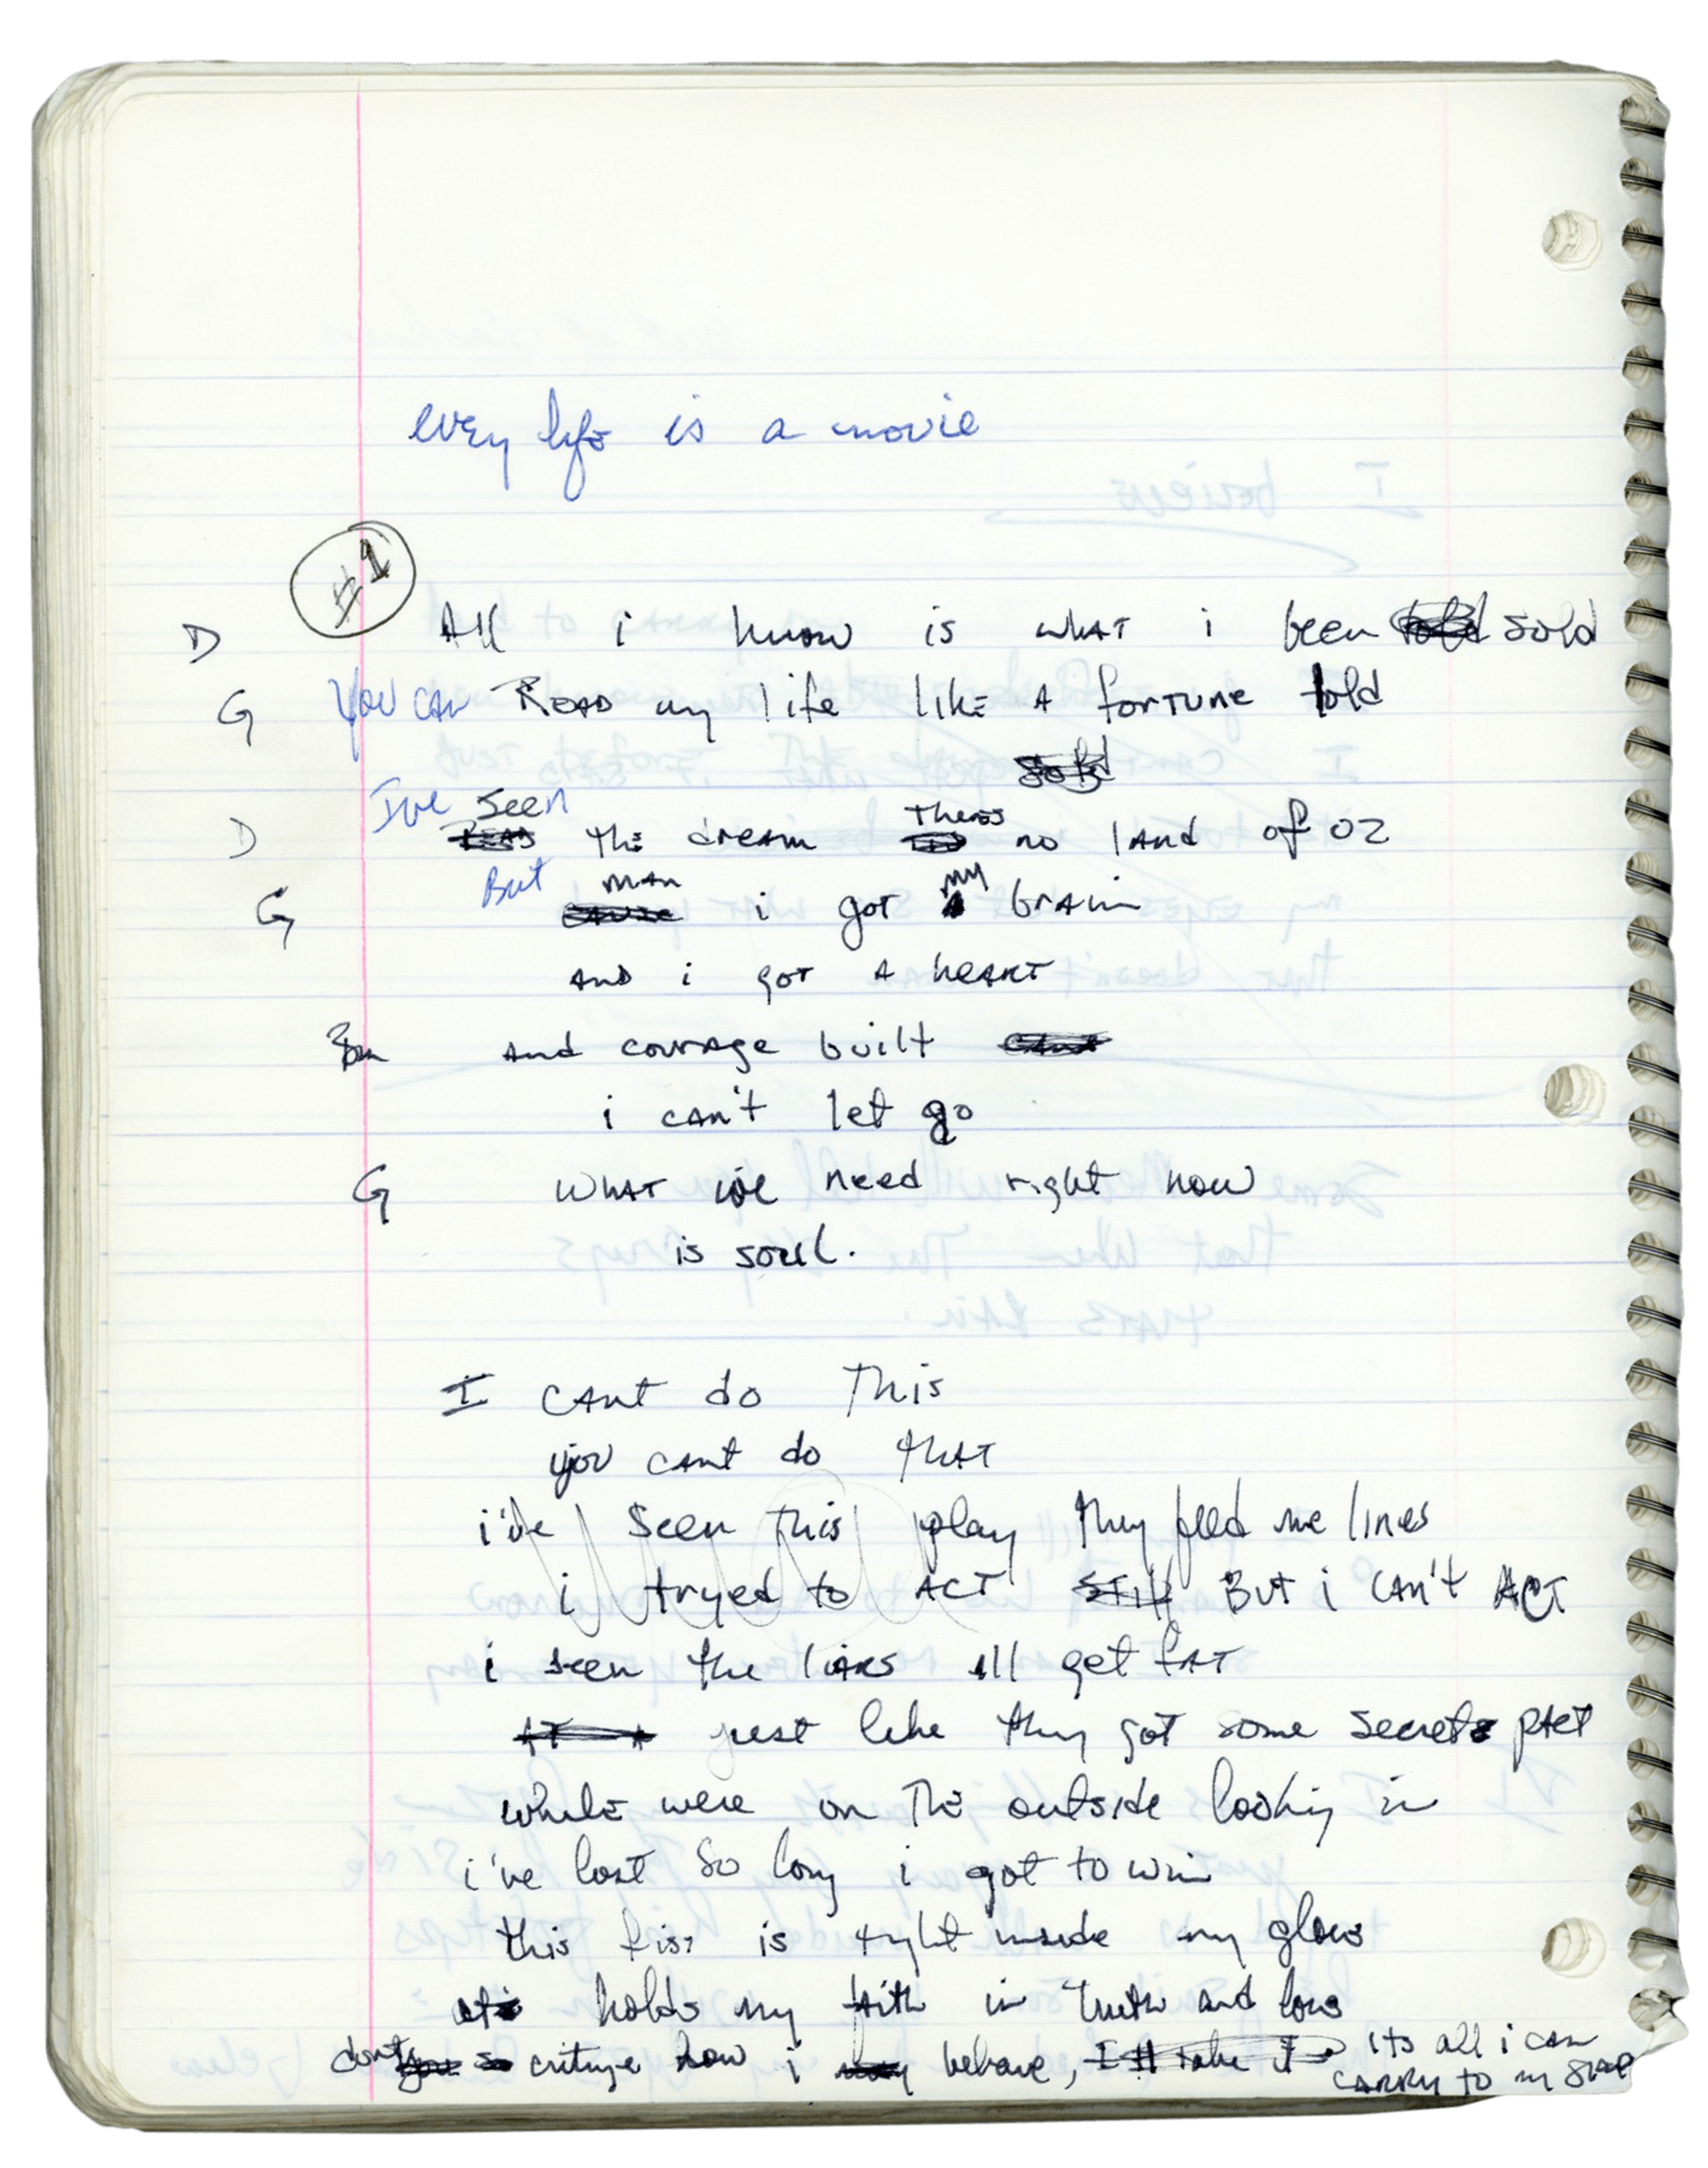 every life is a movie
#1
D All i know is what i been told sold
G You can Read my life like a fortune told
sold
I've seen theres
D Read the dream no land of oz
But man my
G cause i got a brain
and i got a heart
Bm and courage built
i can't let go
G what we need right now
is soul.
I cant do this
you cant do that
i've seen this play they feed me lines
i tryed to act still But i can't Act
i seen the liars all get fat
just like they got some secret pact
while were on the outside looking in
i've lost so long i got to win
this fist is tight inside my glove
holds my faith in truth and love
dont crituqe how i may behave, I'll take it its all i can
carry to my grave